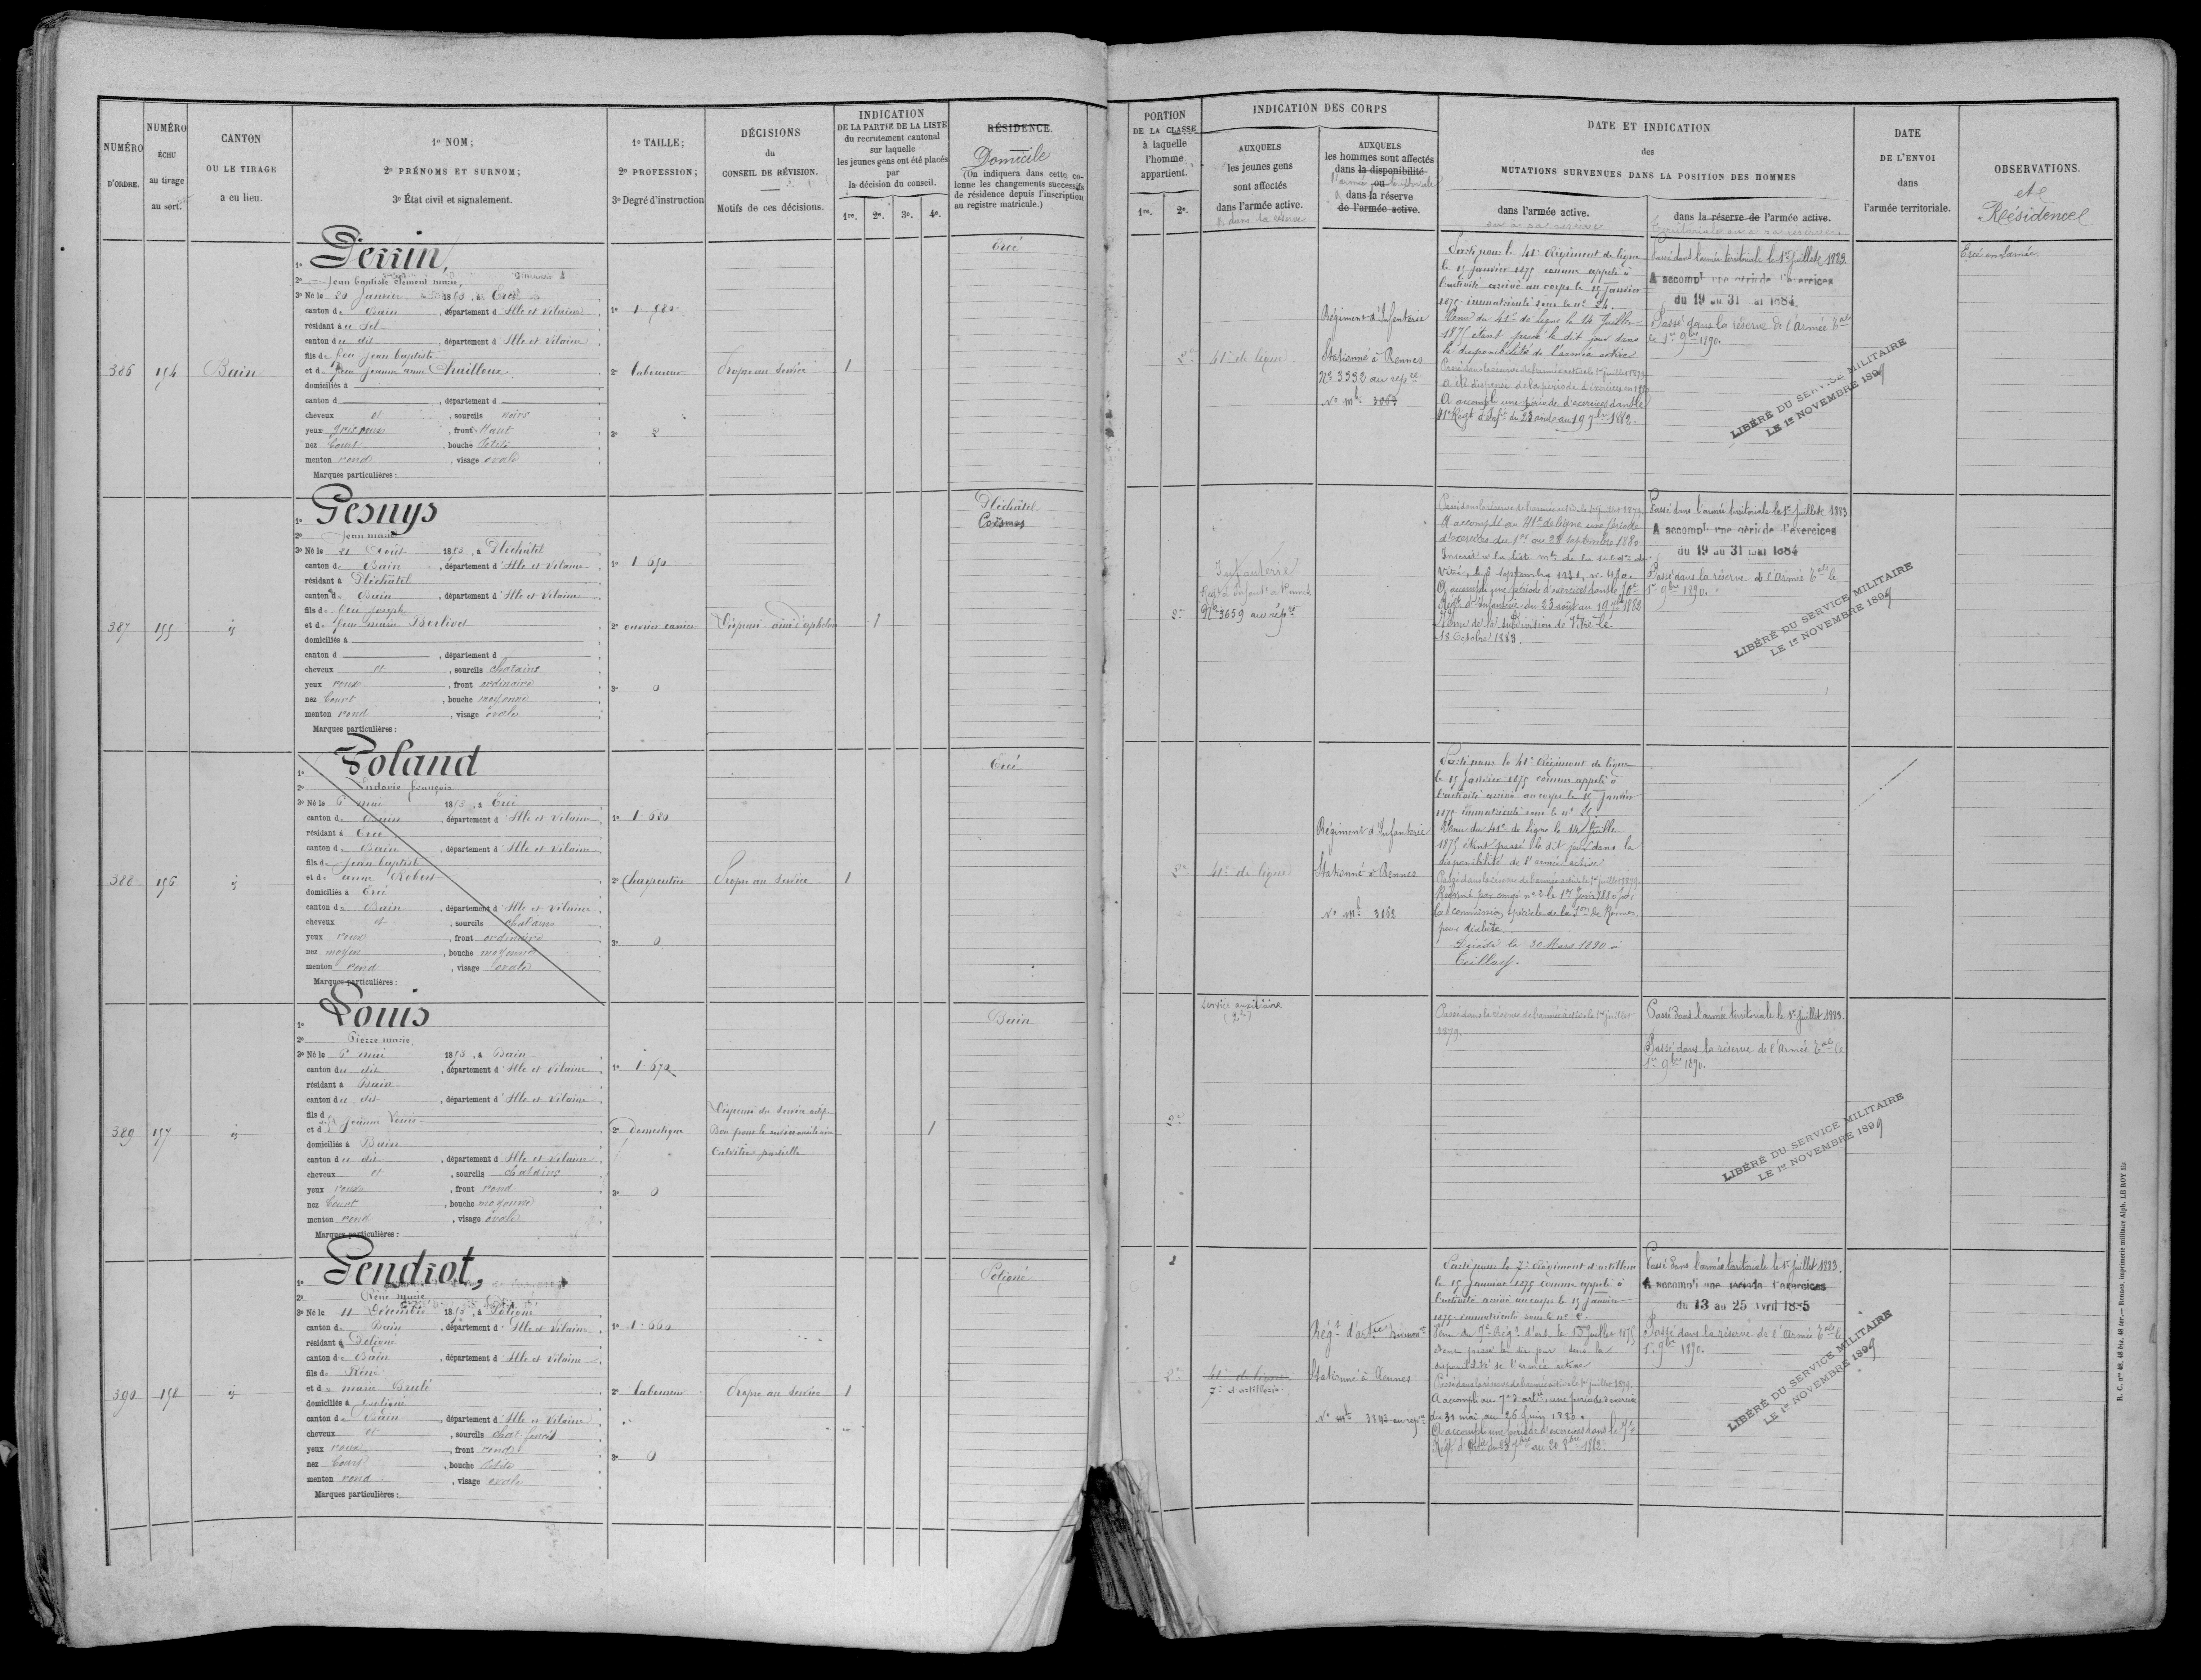 NUMÉRO D'ORDRE.
NUMÉRO ÉCHU au tirage au sort.
CANTON OU LE TIRAGE a eu lieu.
1º NOM;
2º PRÉNOMS ET SURNOM;
3º État civil et signalement.
1º TAILLE;
2º PROFESSION;
3º Degré d'instruction
DÉCISIONS
du
CONSEIL DE RÉVISION.
Motifs de ces décisions.
INDICATION
DE LA PARTIE DE LA LISTE
du recrutement cantonal
sur laquelle
les jeunes gens ont été placés
par
la décision du conseil.
1re. 2e. 3e. 4e.
RÉSIDENCE.
Domicile
(On indiquera dans cette co-
lonne les changements successifs
de résidence depuis l'inscription
au registre matricule.)
PORTION
DE LA CLASSE
à laquelle
l'homme
appartient.
1re. 2e.
INDICATION DES CORPS
AUXQUELS
les jeunes gens
sont affectés
dans l'armée active.
& dans la réserve
AUXQUELS
les hommes sont affectés
dans la disponibilité
ou
l'armée territoriale
dans la réserve
de l'armée active.
DATE ET INDICATION
des
MUTATIONS SURVENUES DANS LA POSITION DES HOMMES
dans l'armée active.
ou à sa réserve
dans la réserve de l'armée active.
territoriale ou à sa réserve
DATE
DE L'ENVOI
dans
l'armée territoriale.
OBSERVATIONS.
et
Résidence
386
154
Bain
1º Perrin,
2º Jean baptiste Clément marie,
3º Né le 20 Janvier 1853, à Ercé
canton de Bain, département d'Ille et Vilaine
résidant à Le Sel
canton du dit, département d'Ille et Vilaine
fils de feu Jean baptiste
et de feue Jeanne anne Chailloux
domiciliés à
canton d , département d
cheveux et , sourcils noirs
yeux gris roux, front Haut
nez Court, bouche Petite
menton rond, visage ovale
Marques particulières :
1º 1.680
2º laboureur
3º 2
Propre au service
1
Ercé
2e
41e de ligne
Régiment d'Infanterie
Stationné à Rennes
Nº 3392 au repre
Nº mle 3063
Parti pour le 41e Régiment de ligne
le 15 janvier 1875 comme appelé à
l'activité arrivé au corps le 15 janvier
1875 immatriculé sous le nº 24.
Venu du 41e de ligne le 14 Juillet
1875 étant passé le dit jour dans
la disponibilité de l'armée active
Passé dans la réserve de l'armée active le 1er juillet 1879.
A été dispensé de la période d'exercices en 1880
A accompli une période d'exercices dans le
41e Régt d'Infie du 23 août au 19 7bre 1882.
Passé dans l'armée territoriale le 1er juillet 1883.
A accompli une période d'exercices
du 19 au 31 mai 1884
Passé dans la réserve de l'Armée Tale
le 1er 9bre 1890.
LIBÉRÉ DU SERVICE MILITAIRE
LE 1er NOVEMBRE 1899
Ercé en Lamée.
387
155
id
1º Gesnys
2º Jean marie
3º Né le 21 Août 1853, à Pléchâtel
canton de Bain, département d'Ille et Vilaine
résidant à Pléchâtel
canton de Bain, département d'Ille et Vilaine
fils de feu Joseph
et de feue marie Berlivet
domiciliés à
canton d , département d
cheveux et , sourcils chatains
yeux roux, front ordinaire
nez Court, bouche moyenne
menton rond, visage ovale
Marques particulières :
1º 1.650
2º ouvrier carrier
3º 0
Dispensé aîné d'orphelins
1
Pléchâtel
Coësmes
2e
Infanterie
Nº 3659 au répre
Passé dans la réserve de l'armée active le 1er juillet 1879.
A accompli au 41e de ligne une période
d'exercices du 1er au 28 septembre 1880
Inscrit à la liste mle de la subdon de
Vitré, le 6 septembre 1881, nº 480.
A accompli une période d'exercices dans le 70e
Régt d'Infanterie du 23 août au 19 7bre 1882
Venu de la subdivision de Vitré le
18 Octobre 1883.
Passé dans l'armée territoriale le 1er juillet 1883
A accompli une période d'exercices
du 19 au 31 mai 1884
Passé dans la réserve de l'Armée Tale le
1er 9bre 1890.
LIBÉRÉ DU SERVICE MILITAIRE
LE 1er NOVEMBRE 1899
388
156
id
1º Poland
2º Ludovic françois
3º Né le 6 mai 1853, à Ercé
canton de Bain, département d'Ille et Vilaine
résidant à Ercé
canton de Bain, département d'Ille et Vilaine
fils de Jean baptiste
et de anne Robert
domiciliés à Ercé
canton de Bain, département d'Ille et Vilaine
cheveux et , sourcils chatains
yeux roux, front ordinaire
nez moyen, bouche moyenne
menton rond, visage ovale
Marques particulières :
1º 1.680
2º Charpentier
3º 0
Propre au service
1
Ercé
2e
41e de ligne
Régiment d'Infanterie
Stationné à Rennes
Nº mle 3062
Parti pour le 41e Régiment de ligne
le 15 janvier 1875 comme appelé à
l'activité arrivé au corps le 15 janvier
1875 immatriculé sous le nº 25.
Venu du 41e de ligne le 14 Juillet
1875 étant passé le dit jour dans la
disponibilité de l'armée active
Passé dans la réserve de l'armée active le 1er juillet 1879.
Réformé par congé nº 2 le 1er Juin 1880 par
la commission spéciale de la Son de Rennes
pour
Décédé le 30 Mars 1890 à
Teillay.
389
157
id
1º Louis
2º Pierre marie,
3º Né le 6 mai 1853, à Bain
canton du dit, département d'Ille et Vilaine
résidant à Bain
canton du dit, département d'Ille et Vilaine
fils d
et d Jeanne Louis
domiciliés à Bain
canton du dit, département d'Ille et Vilaine
cheveux et , sourcils chatains
yeux roux, front rond
nez Court, bouche moyenne
menton rond, visage ovale
Marques particulières :
1º 1.670
2º Domestique
3º 0
Dispensé du service actif
Bon pour le service auxiliaire
Calvitie partielle
1
Bain
2e
Service auxiliaire
Passé dans la réserve de l'armée active le 1er juillet
1879.
Passé dans l'armée territoriale le 1er juillet 1883.
Passé dans la réserve de l'Armée Tale le
1er 9bre 1890.
LIBÉRÉ DU SERVICE MILITAIRE
LE 1er NOVEMBRE 1899
390
158
id
1º Gendrot,
2º René marie
3º Né le 11 Décembre 1853, à Poligné
canton de Bain, département d'Ille et Vilaine
résidant à Poligné
canton de Bain, département d'Ille et Vilaine
fils de René
et de marie Brulé
domiciliés à Poligné
canton de Bain, département d'Ille et Vilaine
cheveux et , sourcils chat foncés
yeux roux, front rond
nez Court, bouche Petite
menton rond, visage ovale
Marques particulières :
1º 1.660
2º laboureur
3º 0
Propre au service
1
Poligné
2
2e
41e de ligne
7e d'artillerie
Régt d'artie
Stationné à Rennes
Nº mle 3343 au repre
Parti pour le 7e Régiment d'artillerie
le 15 Janvier 1875 comme appelé à
l'activité arrivé au corps le 15 janvier
1875 immatriculé sous le nº
Venu du 7e Régt d'art. le 15 Juillet 1875
étant passé le dit jour dans la
disponibilité de l'armée active
Passé dans la réserve de l'armée active le 1er juillet 1879.
A accompli au 7e d'artie une période d'exercice
du 31 mai au 26 Juin 1880.
A accompli une période d'exercices dans le 7e
Régt d'Artie du 23 7bre au 20 8bre 1882.
Passé dans l'armée territoriale le 1er juillet 1883.
A accompli une période d'exercices
du 13 au 25 avril 1885
Passé dans la réserve de l'Armée Tale le
1er 9bre 1890.
LIBÉRÉ DU SERVICE MILITAIRE
LE 1er NOVEMBRE 1899
R. C. nos 40, 48 bis, 48 ter.— Rennes, imprimerie militaire Alph. LE ROY fils